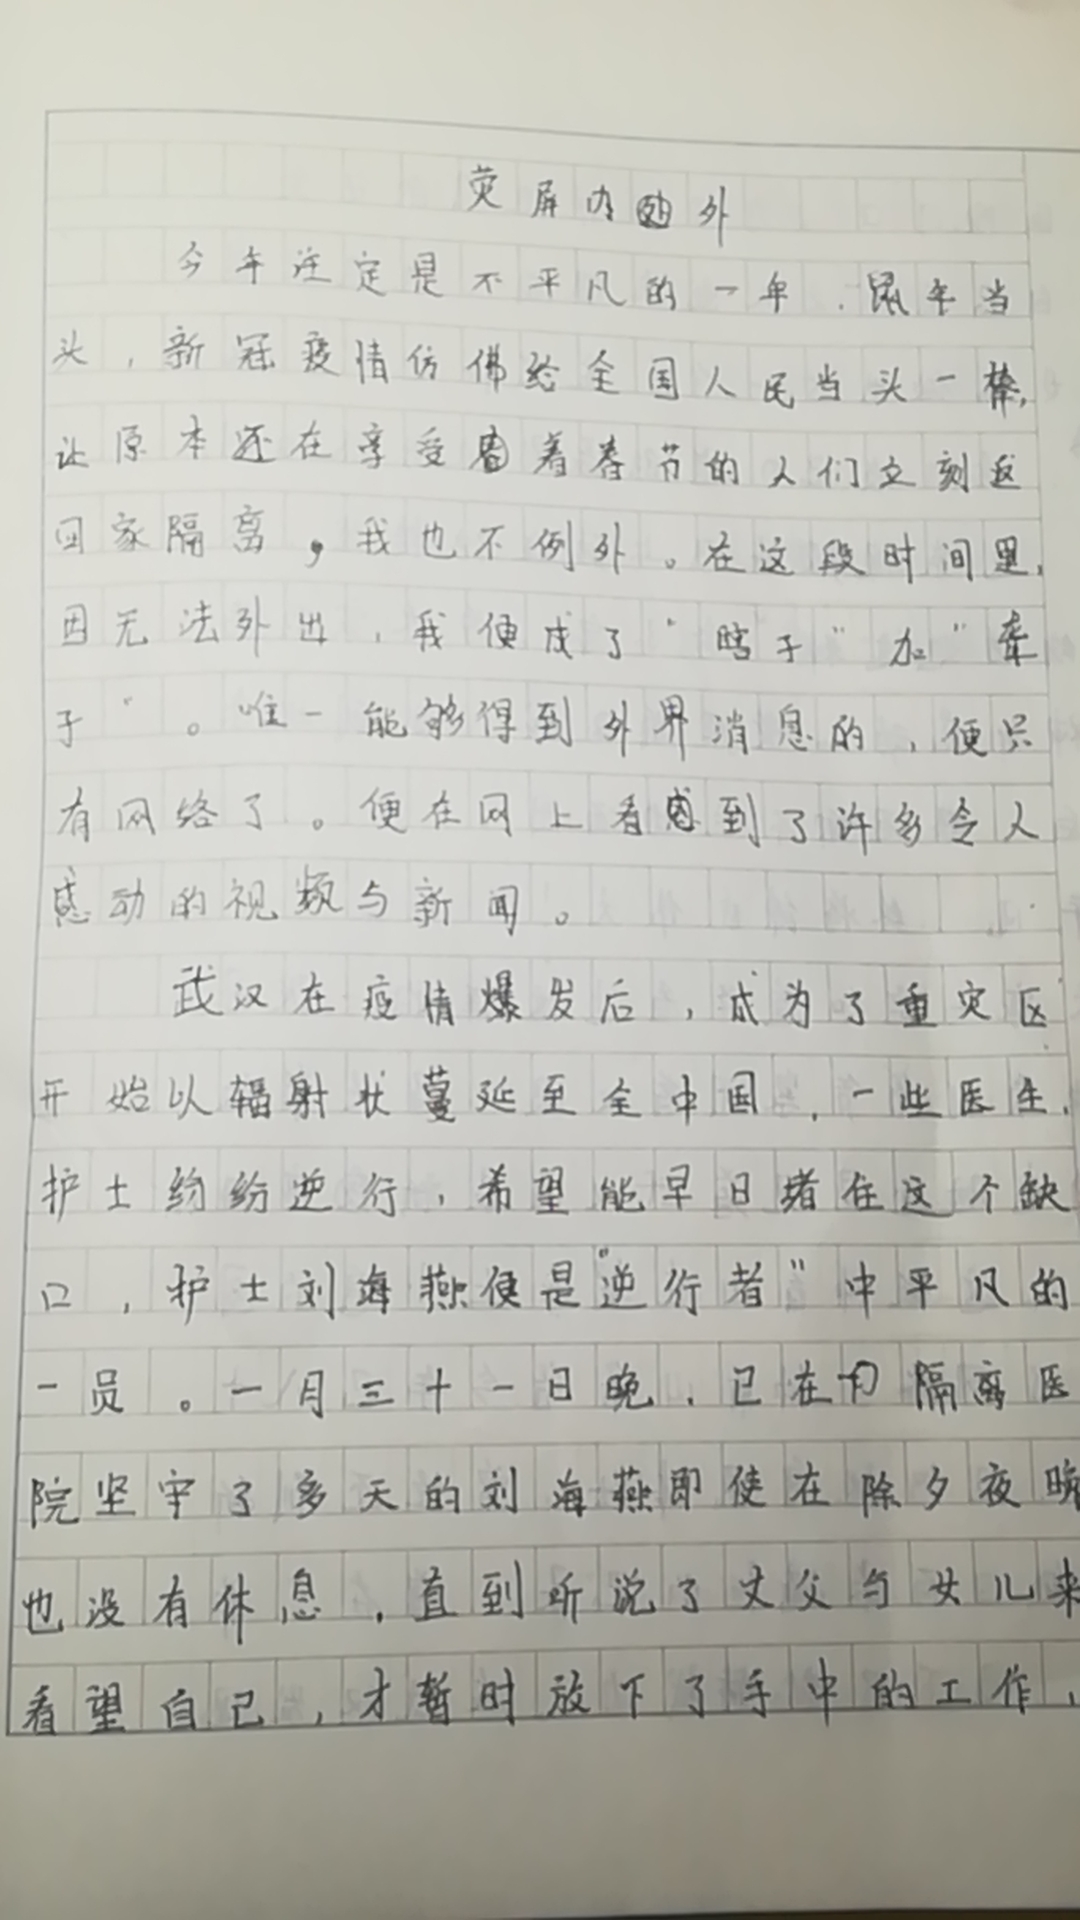 荧屏内外
今年注定是不平凡的一年．鼠年当
头，新冠疫情仿佛给全国人民当头一棒，
让原本还在享受着春节的人们立刻返
回家隔离，我也不例外。在这段时间里，
因无法外出，我便成了“瞎子”加“聋
子”。唯一能够得到外界消息的，便只
有网络了。便在网上看到了许多令人
感动的视频与新闻。
武汉在疫情爆发后，成为了重灾区
开始以辐射状蔓延至全中国，一些医生，
护士纷纷逆行，希望能早日堵住这个缺
口，护士刘海燕便是“逆行者”中平凡的
一员。一月三十一日晚，已在隔离医
院坚守了多天的刘海燕即使在除夕夜晚
也没有休息，直到听说了丈父与女儿来
看望自己，才暂时放下了手中的工作，